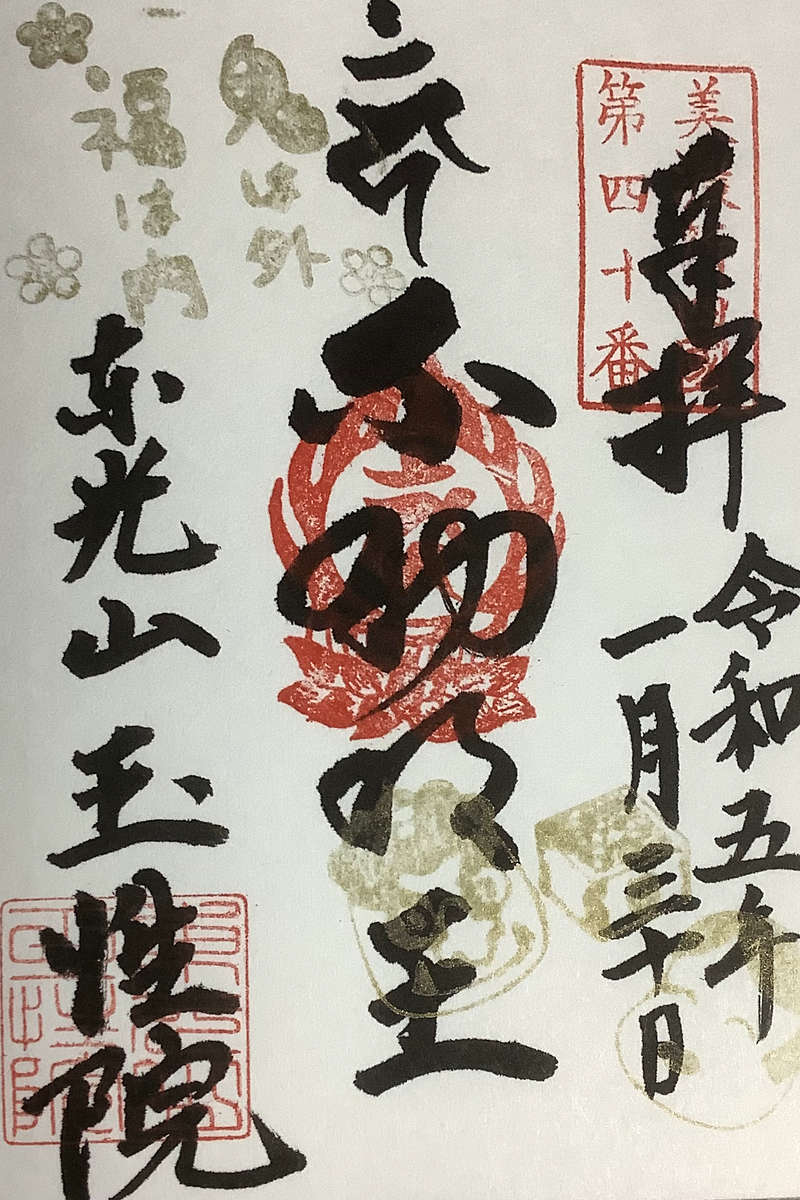 美濃新四國
第四十番
奉拝
令和五年
一月三十日
不動明王
鬼は外
福は内
東光山 玉性院